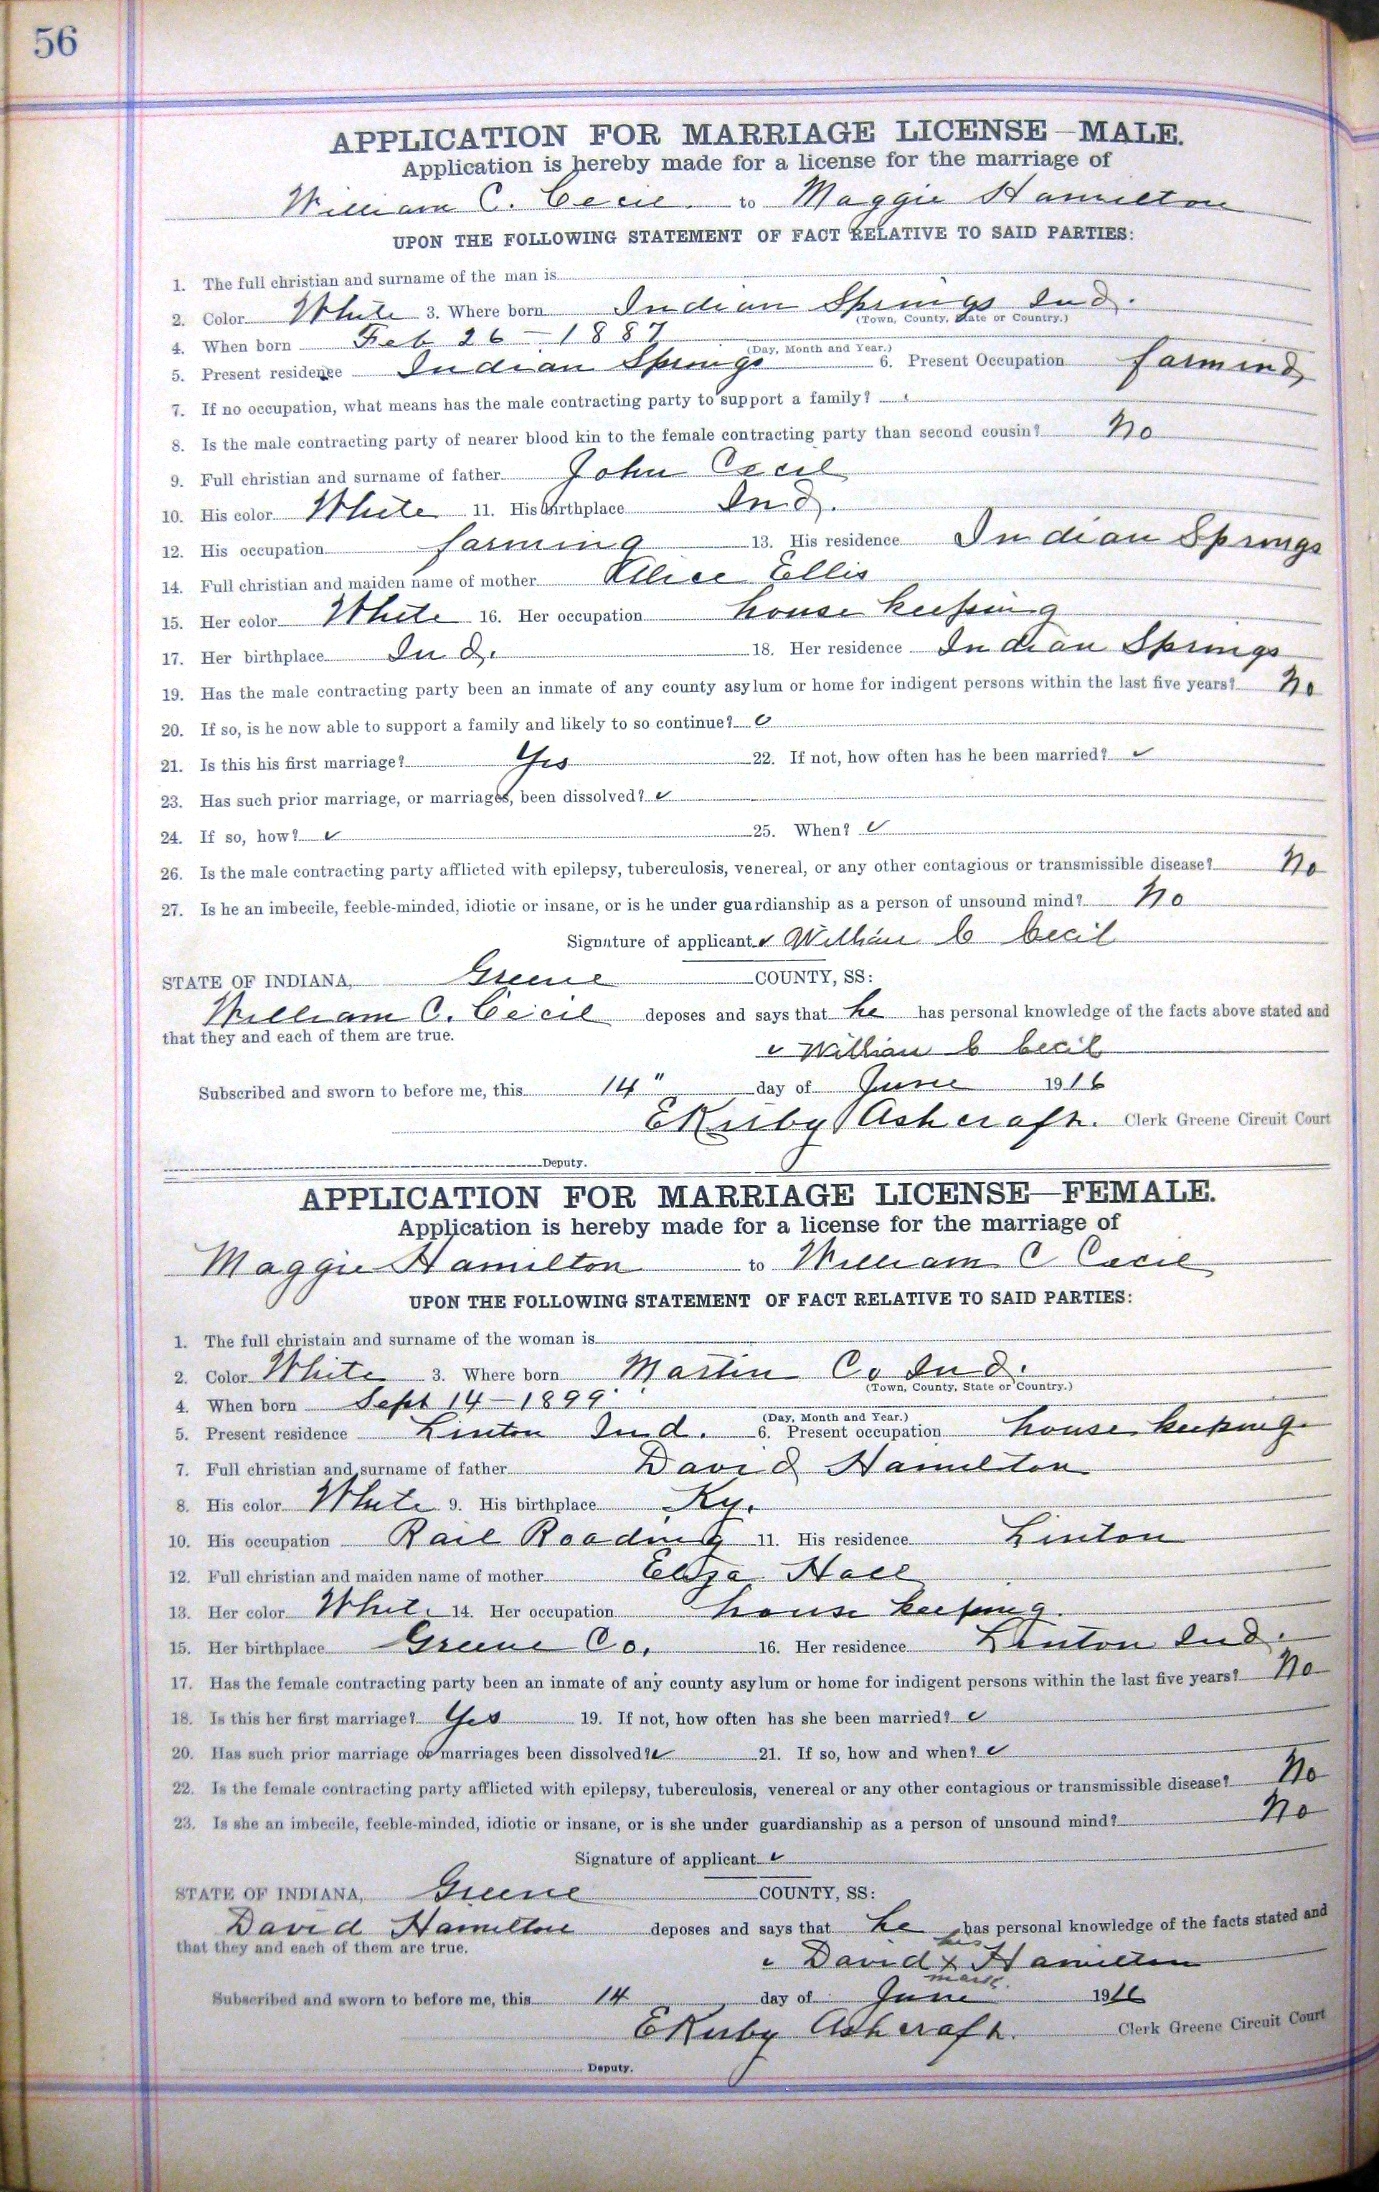 56
APPLICATION FOR MARRIAGE LICENSE—MALE.
Application is hereby made for a license for the marriage of
William C. Cecil to Maggie Hamilton
UPON THE FOLLOWING STATEMENT OF FACT RELATIVE TO SAID PARTIES:
1. The full christian and surname of the man is
2. Color White 3. Where born Indian Springs Ind.
(Town, County, State or Country.)
4. When born Feb 26 - 1887
(Day, Month and Year.)
5. Present residence Indian Springs 6. Present Occupation farming
7. If no occupation, what means has the male contracting party to support a family?
8. Is the male contracting party of nearer blood kin to the female contracting party than second cousin? No
9. Full christian and surname of father John Cecil
10. His color White 11. His birthplace Ind.
12. His occupation farming 13. His residence Indian Springs
14. Full christian and maiden name of mother Alice Ellis
15. Her color White 16. Her occupation house keeping
17. Her birthplace Ind. 18. Her residence Indian Springs
19. Has the male contracting party been an inmate of any county asylum or home for indigent persons within the last five years? No
20. If so, is he now able to support a family and likely to so continue? ✓
21. Is this his first marriage? Yes 22. If not, how often has he been married? ✓
23. Has such prior marriage, or marriages, been dissolved? ✓
24. If so, how? ✓ 25. When? ✓
26. Is the male contracting party afflicted with epilepsy, tuberculosis, venereal, or any other contagious or transmissible disease? No
27. Is he an imbecile, feeble-minded, idiotic or insane, or is he under guardianship as a person of unsound mind? No
Signature of applicant ✓ William C Cecil
STATE OF INDIANA, Greene COUNTY, SS:
William C. Cecil deposes and says that he has personal knowledge of the facts above stated and
that they and each of them are true.
✓ William C Cecil
Subscribed and sworn to before me, this 14" day of June 1916
E Kirby Ashcraft. Clerk Greene Circuit Court
Deputy.
APPLICATION FOR MARRIAGE LICENSE—FEMALE.
Application is hereby made for a license for the marriage of
Maggie Hamilton to William C Cecil
UPON THE FOLLOWING STATEMENT OF FACT RELATIVE TO SAID PARTIES:
1. The full christain and surname of the woman is
2. Color White 3. Where born Martin Co Ind.
(Town, County, State or Country.)
4. When born Sept 14 - 1899
(Day, Month and Year.)
5. Present residence Linton Ind. 6. Present occupation house keeping
7. Full christian and surname of father David Hamilton
8. His color White 9. His birthplace Ky.
10. His occupation Rail Roading 11. His residence Linton
12. Full christian and maiden name of mother Eliza Hall
13. Her color White 14. Her occupation house keeping.
15. Her birthplace Greene Co. 16. Her residence Linton Ind.
17. Has the female contracting party been an inmate of any county asylum or home for indigent persons within the last five years? No
18. Is this her first marriage? Yes 19. If not, how often has she been married? ✓
20. Has such prior marriage or marriages been dissolved? ✓ 21. If so, how and when? ✓
22. Is the female contracting party afflicted with epilepsy, tuberculosis, venereal or any other contagious or transmissible disease? No
23. Is she an imbecile, feeble-minded, idiotic or insane, or is she under guardianship as a person of unsound mind? No
Signature of applicant ✓
STATE OF INDIANA, Greene COUNTY, SS:
David Hamilton deposes and says that he has personal knowledge of the facts stated and
that they and each of them are true.
his
✓ David X Hamilton
mark.
Subscribed and sworn to before me, this 14 day of June 1916
E Kirby Ashcraft. Clerk Greene Circuit Court
Deputy.